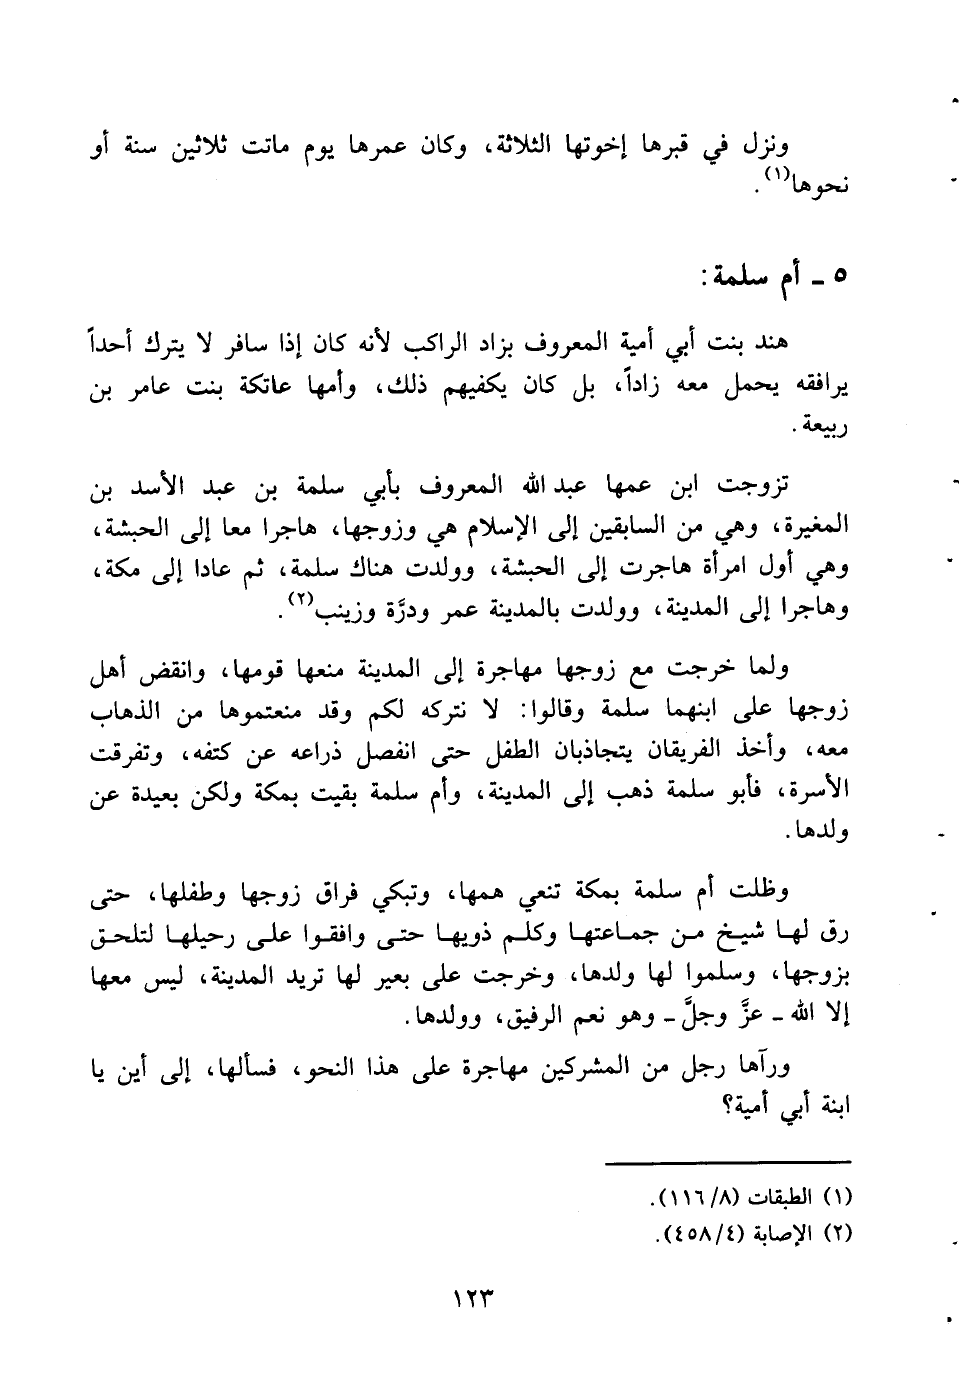 ونزل في قبرها إخوتها الثلاثة، وكان عمرها يوم ماتت ثلاثين سنة أو
نحوها(١).
٥ ـ أم سلمة:
هند بنت أبي أمية المعروف بزاد الراكب لأنه كان إذا سافر لا يترك أحداً
يرافقه يحمل معه زاداً، بل كان يكفيهم ذلك، وأمها عاتكة بنت عامر بن
ربيعة.
تزوجت ابن عمها عبد الله المعروف بأبي سلمة بن عبد الأسد بن
المغيرة، وهي من السابقين إلى الإسلام هي وزوجها، هاجرا معا إلى الحبشة،
وهي أول امرأة هاجرت إلى الحبشة، وولدت هناك سلمة، ثم عادا إلى مكة،
وهاجرا إلى المدينة، وولدت بالمدينة عمر ودرَّة وزينب(٢).
ولما خرجت مع زوجها مهاجرة إلى المدينة منعها قومها، وانقض أهل
زوجها على ابنهما سلمة وقالوا: لا نتركه لكم وقد منعتموها من الذهاب
معه، وأخذ الفريقان يتجاذبان الطفل حتى انفصل ذراعه عن كتفه، وتفرقت
الأسرة، فأبو سلمة ذهب إلى المدينة، وأم سلمة بقيت بمكة ولكن بعيدة عن
ولدها.
وظلت أم سلمة بمكة تنعي همها، وتبكي فراق زوجها وطفلها، حتى
رق لها شيخ من جماعتها وكلم ذويها حتى وافقوا على رحيلها لتلحق
بزوجها، وسلموا لها ولدها، وخرجت على بعير لها تريد المدينة، ليس معها
إلا الله ـ عزَّ وجلَّ ـ وهو نعم الرفيق، وولدها.
ورآها رجل من المشركين مهاجرة على هذا النحو، فسألها، إلى أين يا
ابنة أبي أمية؟
(١) الطبقات (٨/١١٦).
(٢) الإصابة (٤/٤٥٨).
١٢٣